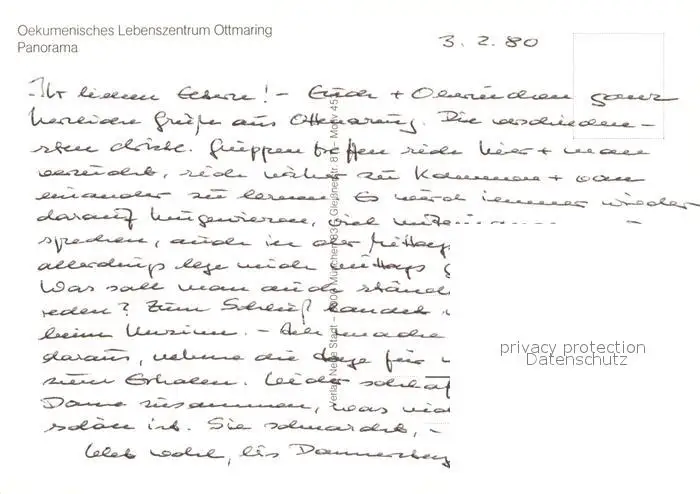 Oekumenisches Lebenszentrum Ottmaring
Panorama
3. 2. 80
Ihr lieben Eltern! – Euch + Oberinchen ganz
herzliche Grüße aus Ottmaring. Die verschieden-
sten christl. Gruppen treffen sich hier + man
versucht, sich näher zu kommen + von
einander zu lernen. Es wird immer wieder
darauf hingewiesen, viel mitei
sprechen, auch in der Mittags
allerdings lege mich mittags
Was soll man auch ständ
reden? Zum Schluß landet
beim Unsinn. – Ich mache
daraus, nehme die Tage für
zum Erholen. Leider schlaf
Dame zusammen, was nic
schön ist. Sie schnarcht, –
Lebt wohl, bis Donnerstag
Verlag Neue Stadt –
privacy protection
Datenschutz